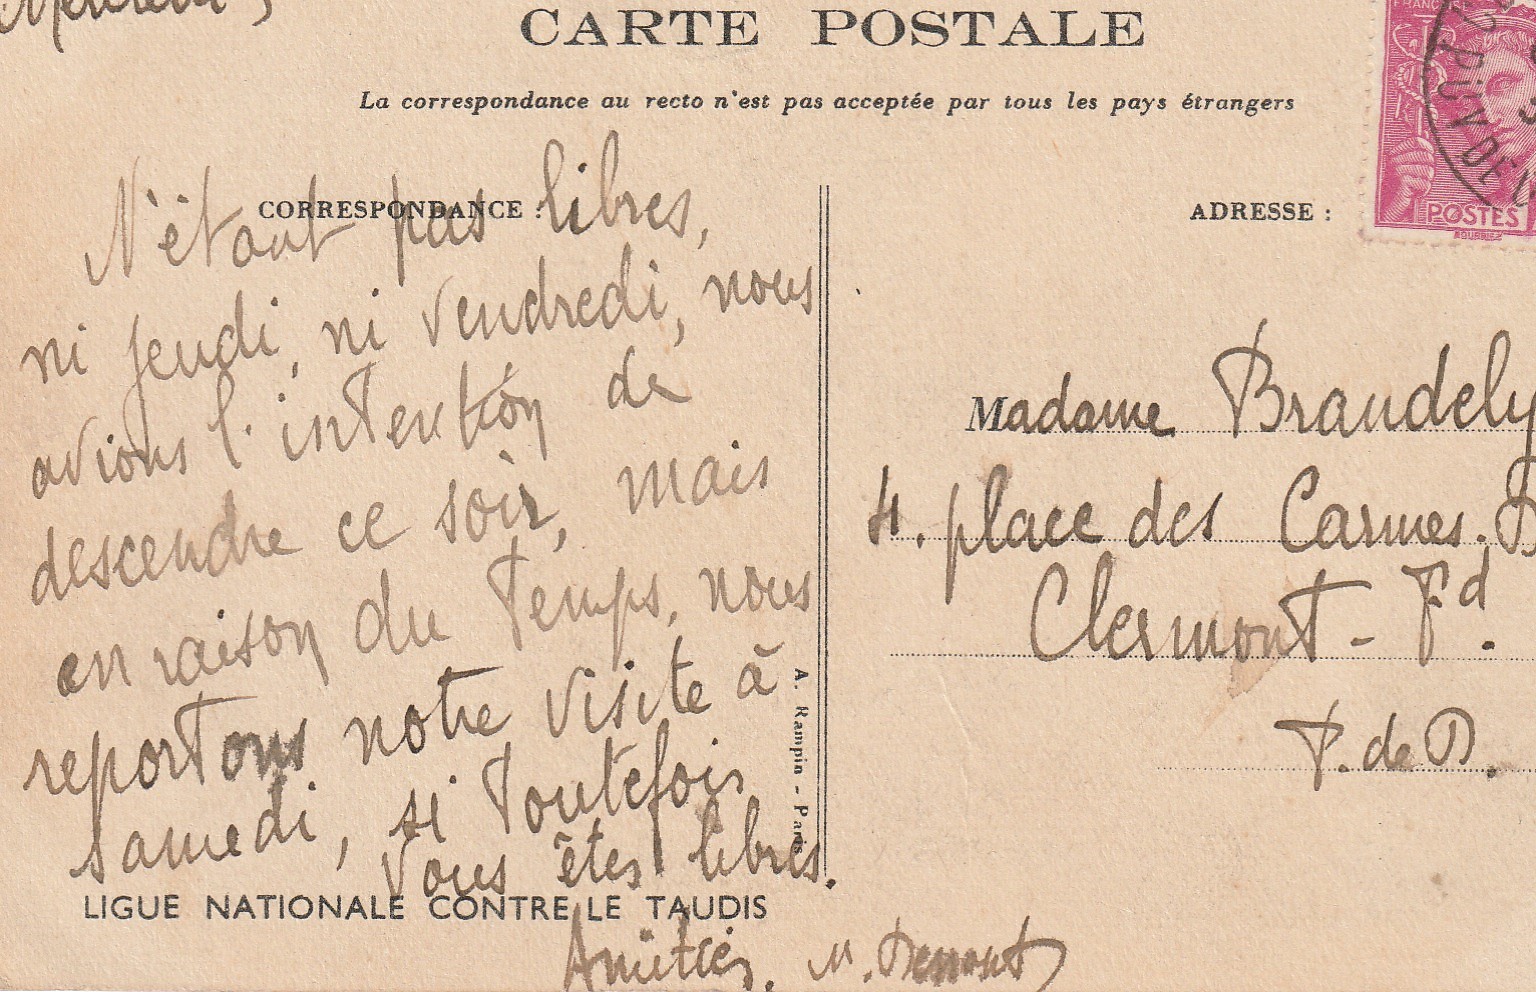 Mercredi,
CARTE POSTALE
La correspondance au recto n'est pas acceptée par tous les pays étrangers
CORRESPONDANCE :
N'étant pas libres,
ni jeudi, ni vendredi, nous
avions l'intention de
descendre ce soir, mais
en raison du temps, nous
reportons notre visite à
samedi, si toutefois
vous êtes libres.
LIGUE NATIONALE CONTRE LE TAUDIS
Amitiés, M.
A. Rampin - Paris
ADRESSE :
POSTES
PUY DE
Madame Brandely
4. place des Carmes. D
Clermont-Fd.
P. de D.